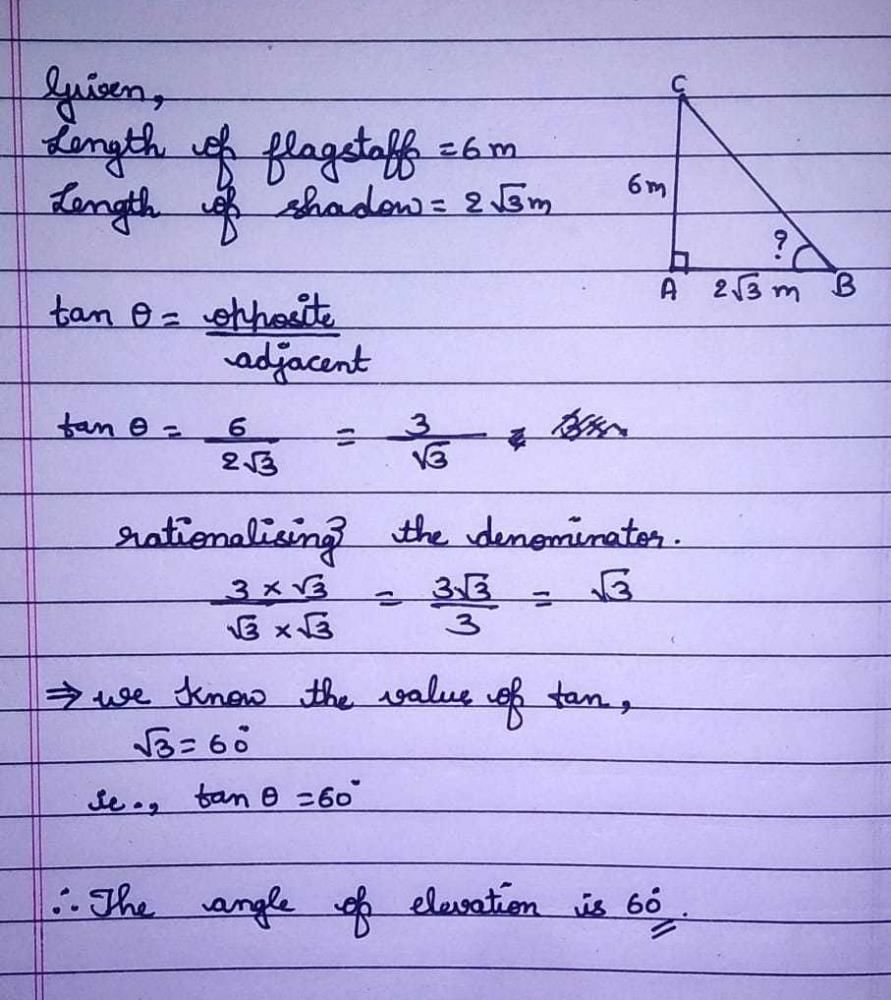 Given,
Length of flagstaff = 6 m
Length of shadow = 2√3 m
C
6m
?
A 2√3 m B
tan θ = opposite
adjacent
tan θ = 6 / 2√3 = 3 / √3
rationalising the denominator.
3 × √3 / √3 × √3 = 3√3 / 3 = √3
⇒ we know the value of tan,
√3 = 60°
ie., tan θ = 60°
∴ The angle of elevation is 60°.